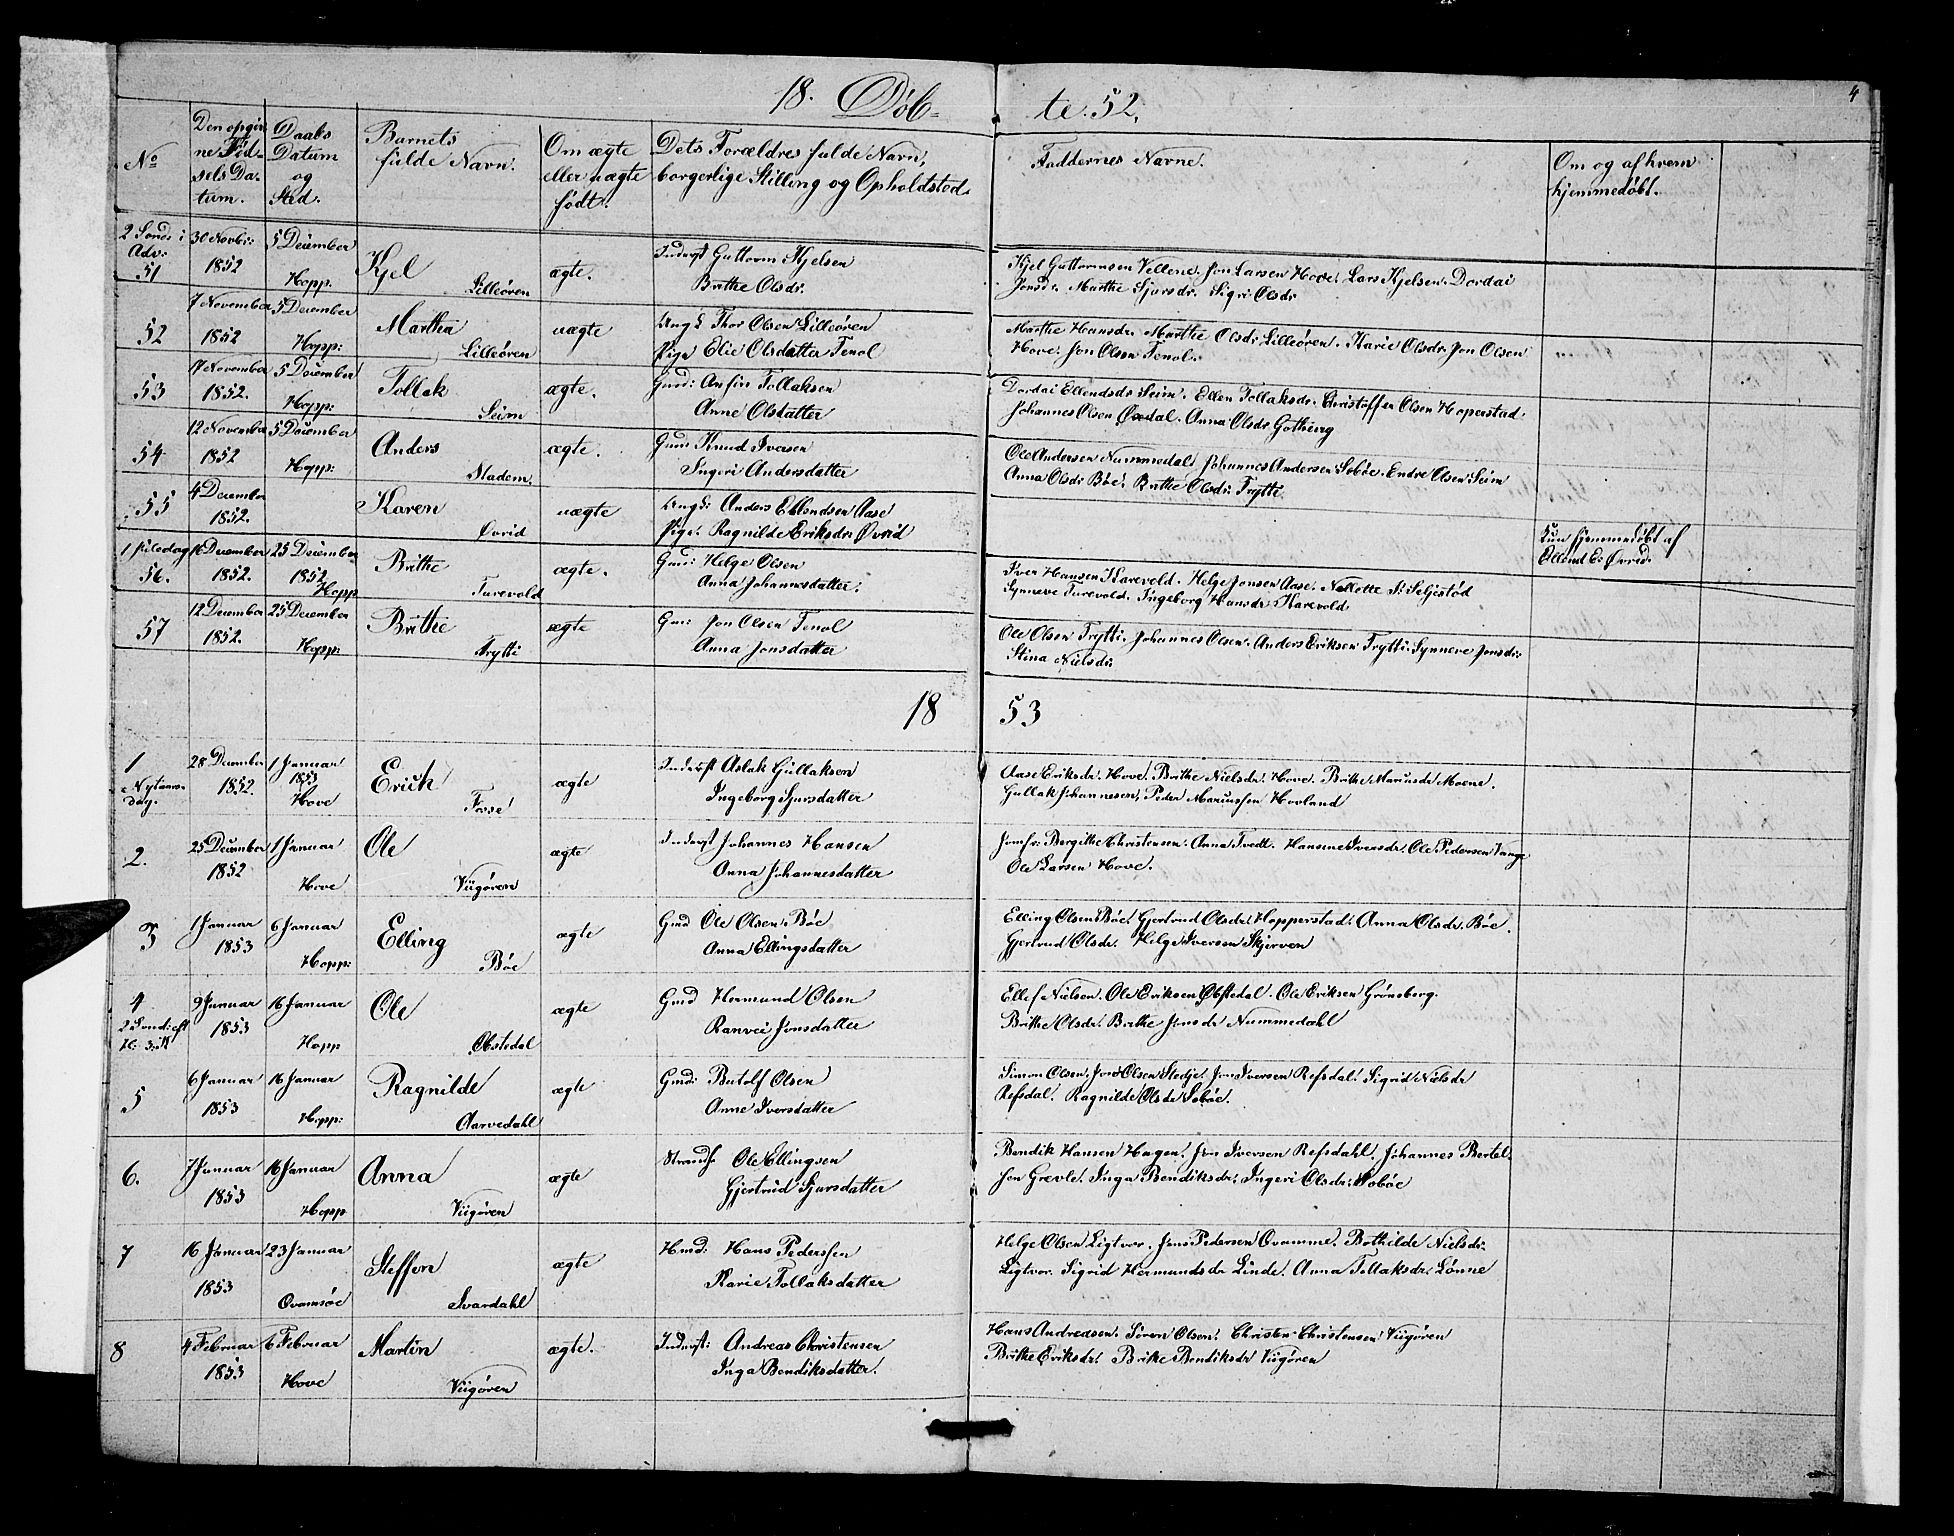 4
18. Döb- te. 52.
No
Den opgiv
ne Fød-
sels Da-
tum.
Daabs
Datum
og
Sted.
Barnets
fulde Navn.
Om ægte
eller uægte
født.
Dets Forældres fulde Navn,
borgerlige Stilling og Opholdsted.
Faddernes Navne.
Om og af hvem
hjemmedøbt.
2 Sønd i
Adv:
51
30 Novbr:
1852
5 December
Hopp.
Kjel
Lilleören
ægte.
Inderst Guttorm Kjelsen
Brithe Olsdr.
Kjel Guttormsen Vellene. Jon Larsen Hove. Lars Kjelsen. Dordai
Jonsdr. Marthe Sjursdr. Sigri Olsdr
52
7 November
1852
5 December
Hopp:
Martha
Lilleören
uægte
Ungk Thor Olsen Lilleören
Pige Elie Olsdatter Tenol
Marthe Hansdr. Marthe Olsdr Lilleören. Karie Olsdr. Jon Olsen
Hove. Jon Olsen Tenol.
53
17 November
1852.
5 December
Hopp:
Tollak
Seim
ægte.
Gmd: Anfin Tollaksen
Anne Olsdatter
Dordai Ellendsdr Seim. Ellen Tollaksdr. Christoffer Olsen Hoperstad.
Johannes Olsen Øxdal. Anna Olsdr Gotheng
54
12 November
1852
5 December
Hopp:
Anders
Stadem.
ægte.
Gmd Knud Iversen
Ingeri Andersdatter
Ole Andersen Nummedal Johannes Andersen Sobøe. Endre Olsen Seim
Anna Olsdr Böe. Brithe Olsdr. Trytti
55
4 December
1852.
Karen
Øvrid
uægte
Ungk: Anders Ellendsen Aase
Pige. Ragnilde Eriksdr. Øvrid
Kun hjemmedöbt af
Ellend E: Øvrid.
1 Juledag
56.
16 December
1852.
25 December
1852
Hopp
Brithe
Turevold
ægte.
Gmd: Helge Olsen
Anna Johannesdatter.
Iver Hansen Karevold. Helge Jonsen Aase. Nellotte S: Seljestöd
Synneve Turevold. Ingeborg Hansdr Karevold
57
12 December
1852.
25 December
Hopp:
Brithe
Trytti
ægte
Gm: Jon Olsen Tenol
Anna Jonsdatter
Ole Olsen Trytti. Johannes Olsen. Anders Eriksen Trytti. Synneve Jonsdr:
Stina Nielsdr.
18 53
1
Nytaars-
dag.
28 December
1852.
1 Januar
1853
Hove
Erich
Fosse
ægte
Inderst Aslak Gullaksen
Ingeborg Sjursdatter
Aase Eriksdr. Hove. Brithe Nielsdr. Hove. Brithe Mariusdr Moene.
Gullak Johannesen, Peder Mariussen Hovland
2.
25 December
1852
1 Januar
Hove
Ole
Viigören
ægte
Inderst Johannes Hansen
Anna Johannesdatter
Jomfr. Bergithe Christensen. Anna Tvedt. Hansine Iversdr. Ole Pedersen Vange
Ole Larsen Hove.
3
1 Januar
1853
6 Januar
Hopp:
Elling
Böe
ægte
Gmd Ole Olsen Böe
Anna Ellingsdatter
Elling Olsen Böe. Gjertrud Olsdr. Hopperstad. Anna Olsdr. Böe.
Gjertrud Olsdr. Helge Iversen Skjerven
4
2 Sønd: eft
H: 3: K
9 Januar
1853
16 Januar
Hopp
Ole
Obstedal
ægte
Gmd Hermund Olsen
Ranvei Jonsdatter
Ellef Nielsen. Ole Eriksen Obstedal. Ole Eriksen Grönsberg.
Brithe Olsdr. Brithe Jonsdr Nummedahl
5
6 Januar
1853
16 Januar
Hopp:
Ragnilde
Aarvedahl
ægte
Gmd: Botolf Olsen
Anne Iversdatter
Simon Olsen. Jon Olsen Stedje. Jon Iversen Refsdal. Sigrid Nielsdr
Refsdal. Ragnilde Olsdr Sobøe.
6.
7 Januar
1853
16 Januar
Hopp
Anna
Viigören
ægte
Strands: Ole Ellingsen
Gjertrud Sjursdatter
Bendik Hansen Hagen. Jon Iversen Refsdahl. Johannes Bertel-
sen Grevle. Inga Bendiksdr. Ingeri Olsdr. Sobøe
7
16 Januar
1853
23 Januar
Qvamsøe
Steffen
Svardahl
ægte
Hmd: Hans Pederssen
Karie Tollaksdatter
Helge Olsen Ligtvor. Jens Pedersen Qvamme. Bothilde Nielsdr.
Ligtvor. Sigrid Hermundsdr Linde. Anna Tollaksdr. Lönne
8
4 Februar
1853
6 Februar
Hove
Martin
Viigören
ægte.
Inderst: Andreas Christensen
Inga Bendiksdatter.
Hans Andreasen. Sören Olsen. Christen Christensen Viigören
Brithe Eriksdr. Brithe Bendiksdr Viigören